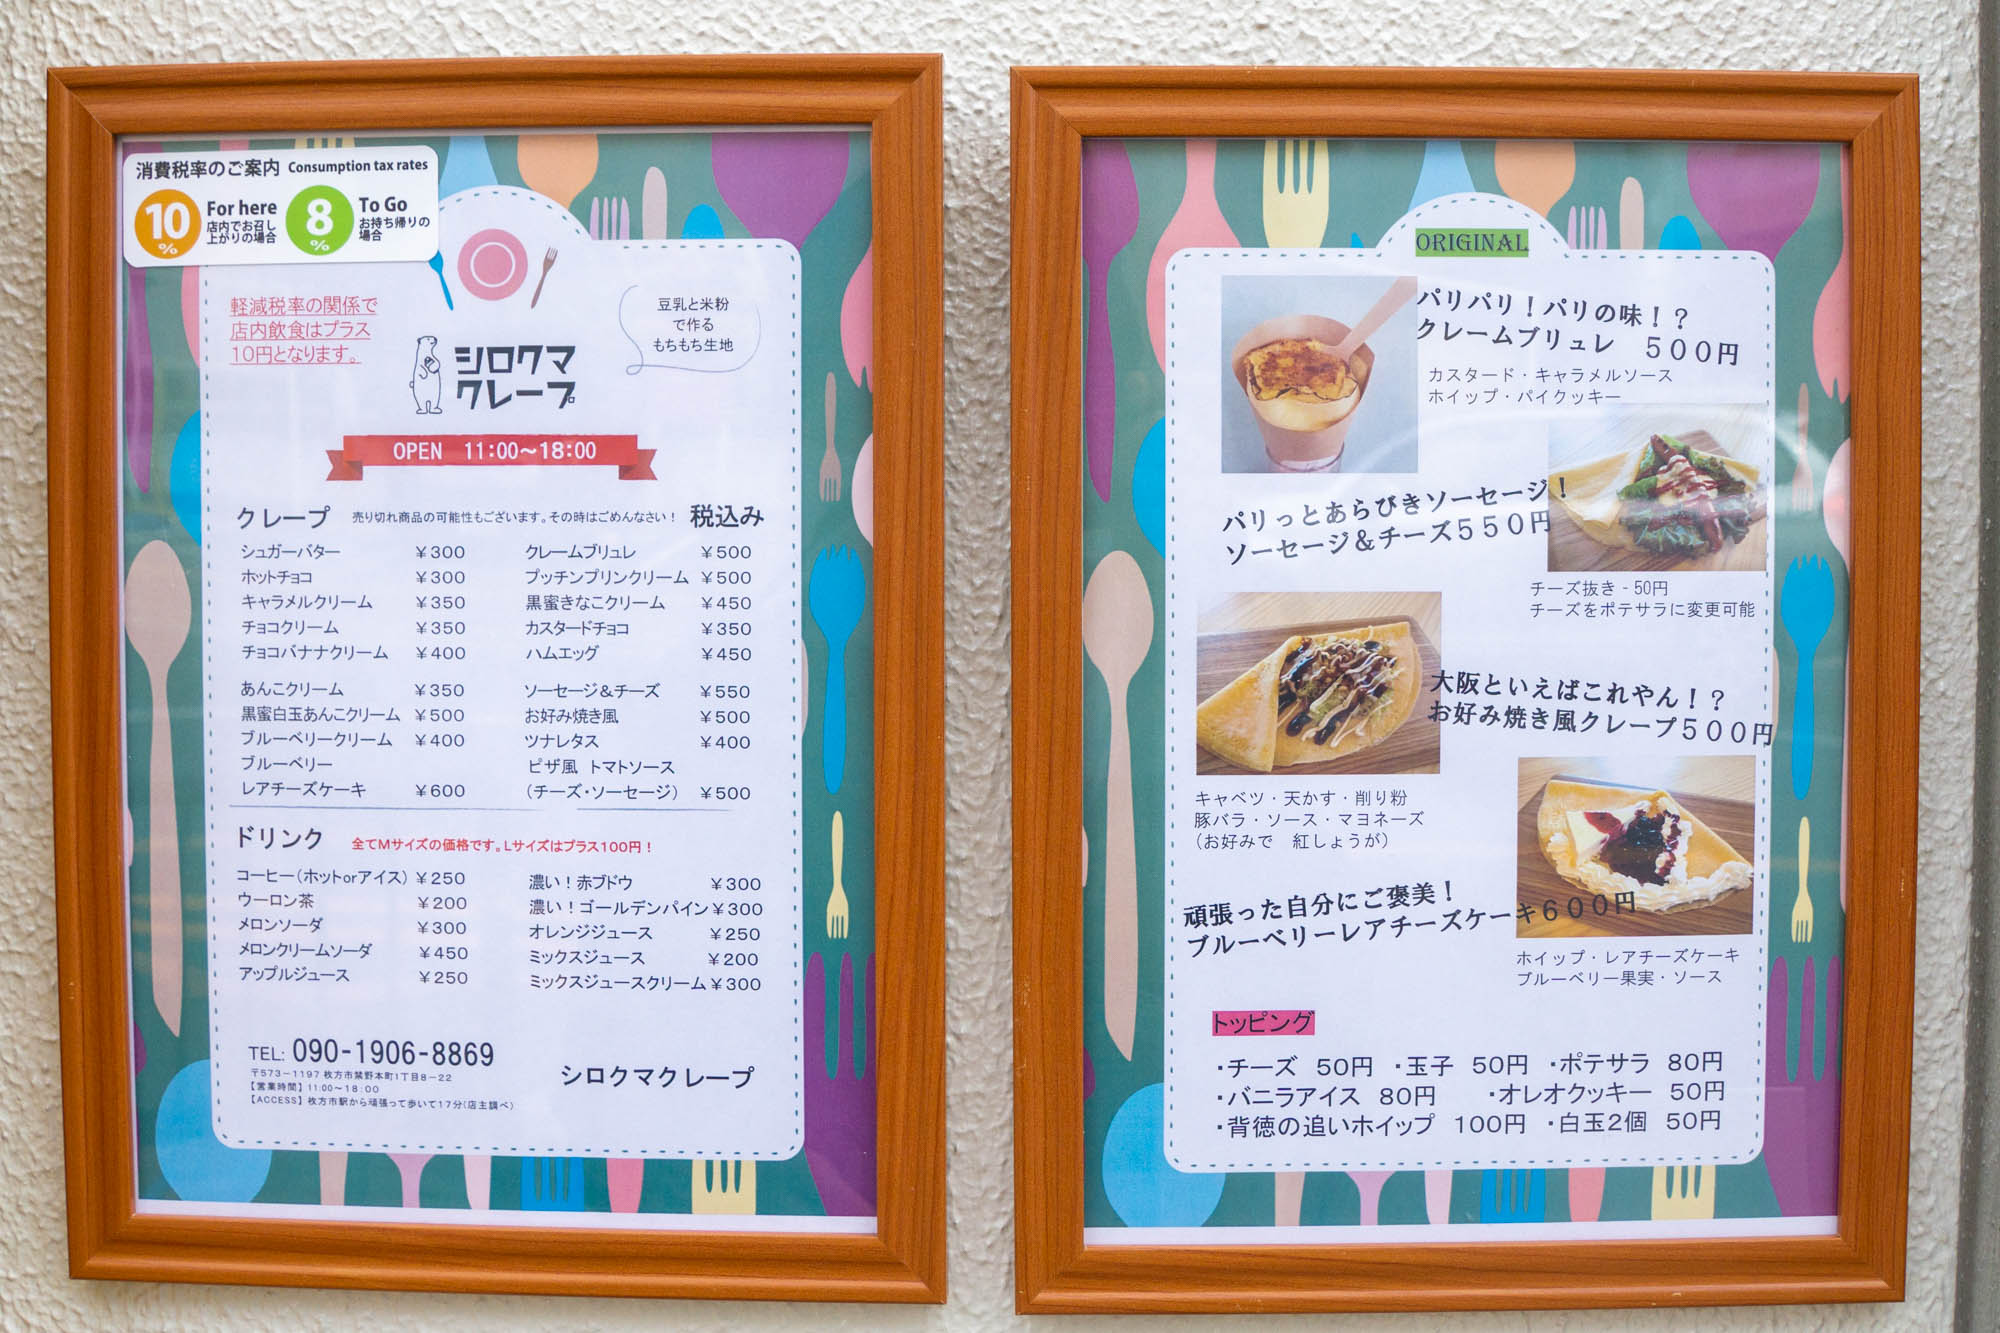 消費税率のご案内 Consumption tax rates
10% For here 店内でお召し上がりの場合
8% To Go お持ち帰りの場合
軽減税率の関係で
店内飲食はプラス
10円となります。
豆乳と米粉
で作る
もちもち生地
シロクマ
クレープ
OPEN 11:00〜18:00
クレープ 売り切れ商品の可能性もございます。その時はごめんなさい! 税込み
シュガーバター ¥300
ホットチョコ ¥300
キャラメルクリーム ¥350
チョコクリーム ¥350
チョコバナナクリーム ¥400
あんこクリーム ¥350
黒蜜白玉あんこクリーム ¥500
ブルーベリークリーム ¥400
ブルーベリー
レアチーズケーキ ¥600
クレームブリュレ ¥500
プッチンプリンクリーム ¥500
黒蜜きなこクリーム ¥450
カスタードチョコ ¥350
ハムエッグ ¥450
ソーセージ&チーズ ¥550
お好み焼き風 ¥500
ツナレタス ¥400
ピザ風 トマトソース
(チーズ・ソーセージ) ¥500
ドリンク 全てMサイズの価格です。Lサイズはプラス100円!
コーヒー(ホットorアイス) ¥250
ウーロン茶 ¥200
メロンソーダ ¥300
メロンクリームソーダ ¥450
アップルジュース ¥250
濃い!赤ブドウ ¥300
濃い!ゴールデンパイン ¥300
オレンジジュース ¥250
ミックスジュース ¥200
ミックスジュースクリーム ¥300
TEL: 090-1906-8869
〒573-1197 枚方市禁野本町1丁目8-22
【営業時間】11:00〜18:00
【ACCESS】枚方市駅から頑張って歩いて17分(店主調べ)
シロクマクレープ
ORIGINAL
パリパリ!パリの味!?
クレームブリュレ 500円
カスタード・キャラメルソース
ホイップ・パイクッキー
パリっとあらびきソーセージ!
ソーセージ&チーズ550円
チーズ抜き - 50円
チーズをポテサラに変更可能
大阪といえばこれやん!?
お好み焼き風クレープ500円
キャベツ・天かす・削り粉
豚バラ・ソース・マヨネーズ
(お好みで 紅しょうが)
頑張った自分にご褒美!
ブルーベリーレアチーズケーキ600円
ホイップ・レアチーズケーキ
ブルーベリー果実・ソース
トッピング
・チーズ 50円 ・玉子 50円 ・ポテサラ 80円
・バニラアイス 80円 ・オレオクッキー 50円
・背徳の追いホイップ 100円 ・白玉2個 50円